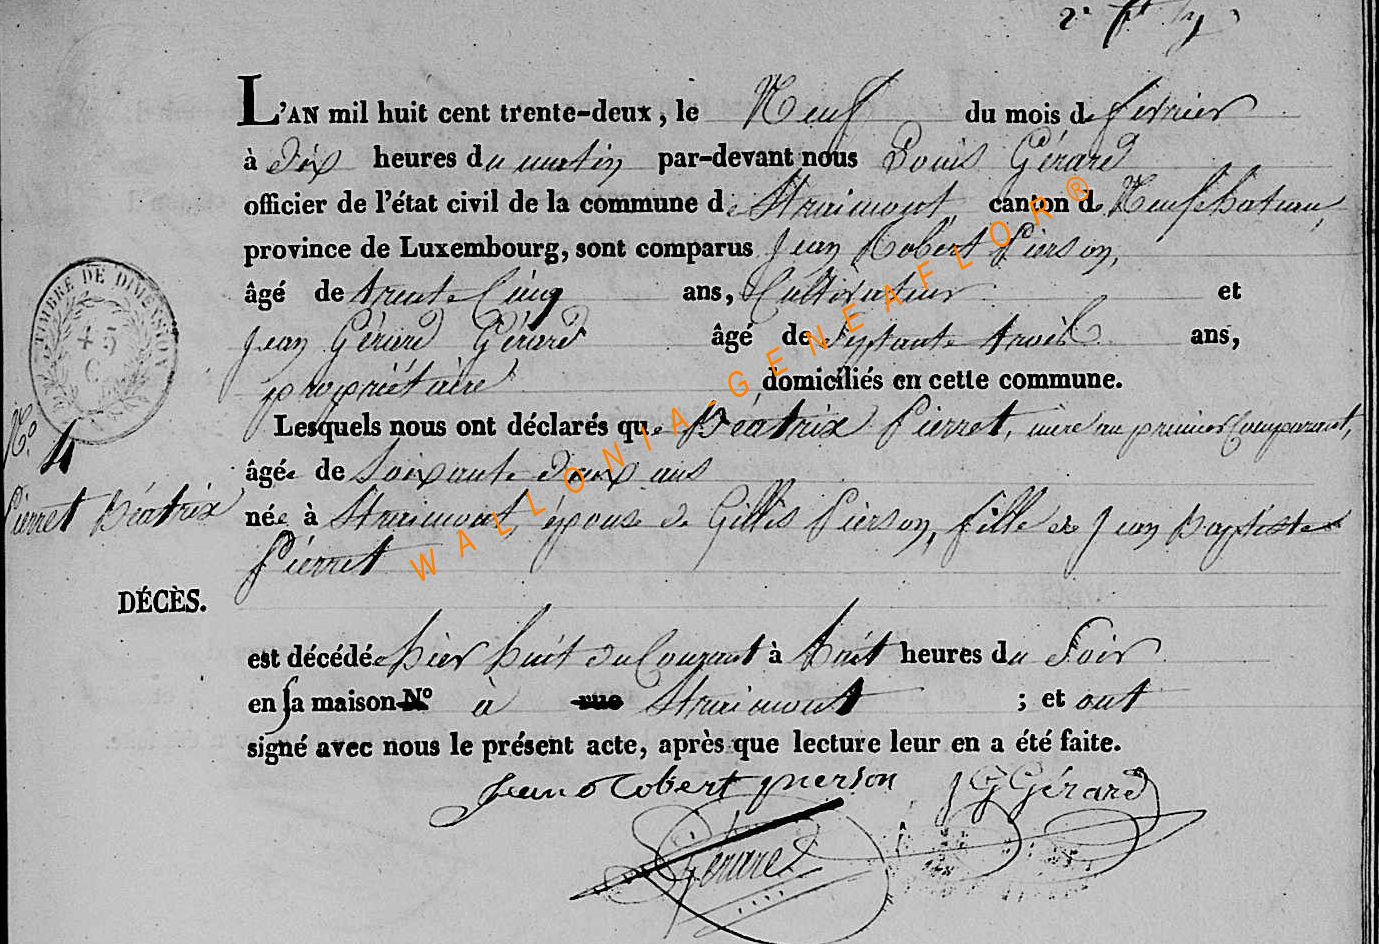 L'AN mil huit cent trente-deux, le Neuf du mois de fevrier
à Dix heures du matin par-devant nous Louis Gérard
officier de l'état civil de la commune de Straimont canton de Neufchateau,
province de Luxembourg, sont comparus Jean Robert Pierson,
âgé de trente Cinq ans, Cultivateur et
Jean Gérard Gérard âgé de Septante trois ans,
propriétaire domiciliés en cette commune.
Lesquels nous ont déclarés que Béatrix Pierret, mère au premier Comparant,
âgée de Soixante deux ans
née à Straimont, épouse de Gillis Pierson, fille de Jean Baptiste
Pierret
est décédée hier huit du Courant à huit heures du Soir
en sa maison N° à rue Straimont ; et ont
signé avec nous le présent acte, après que lecture leur en a été faite.
Jean Robert pierson JG Gérard
Gérard
TIMBRE DE DIMENSION
45
C.
N° 4
Pierret Béatrix
DÉCÈS.
WALLONIA-GENEAFLOR®